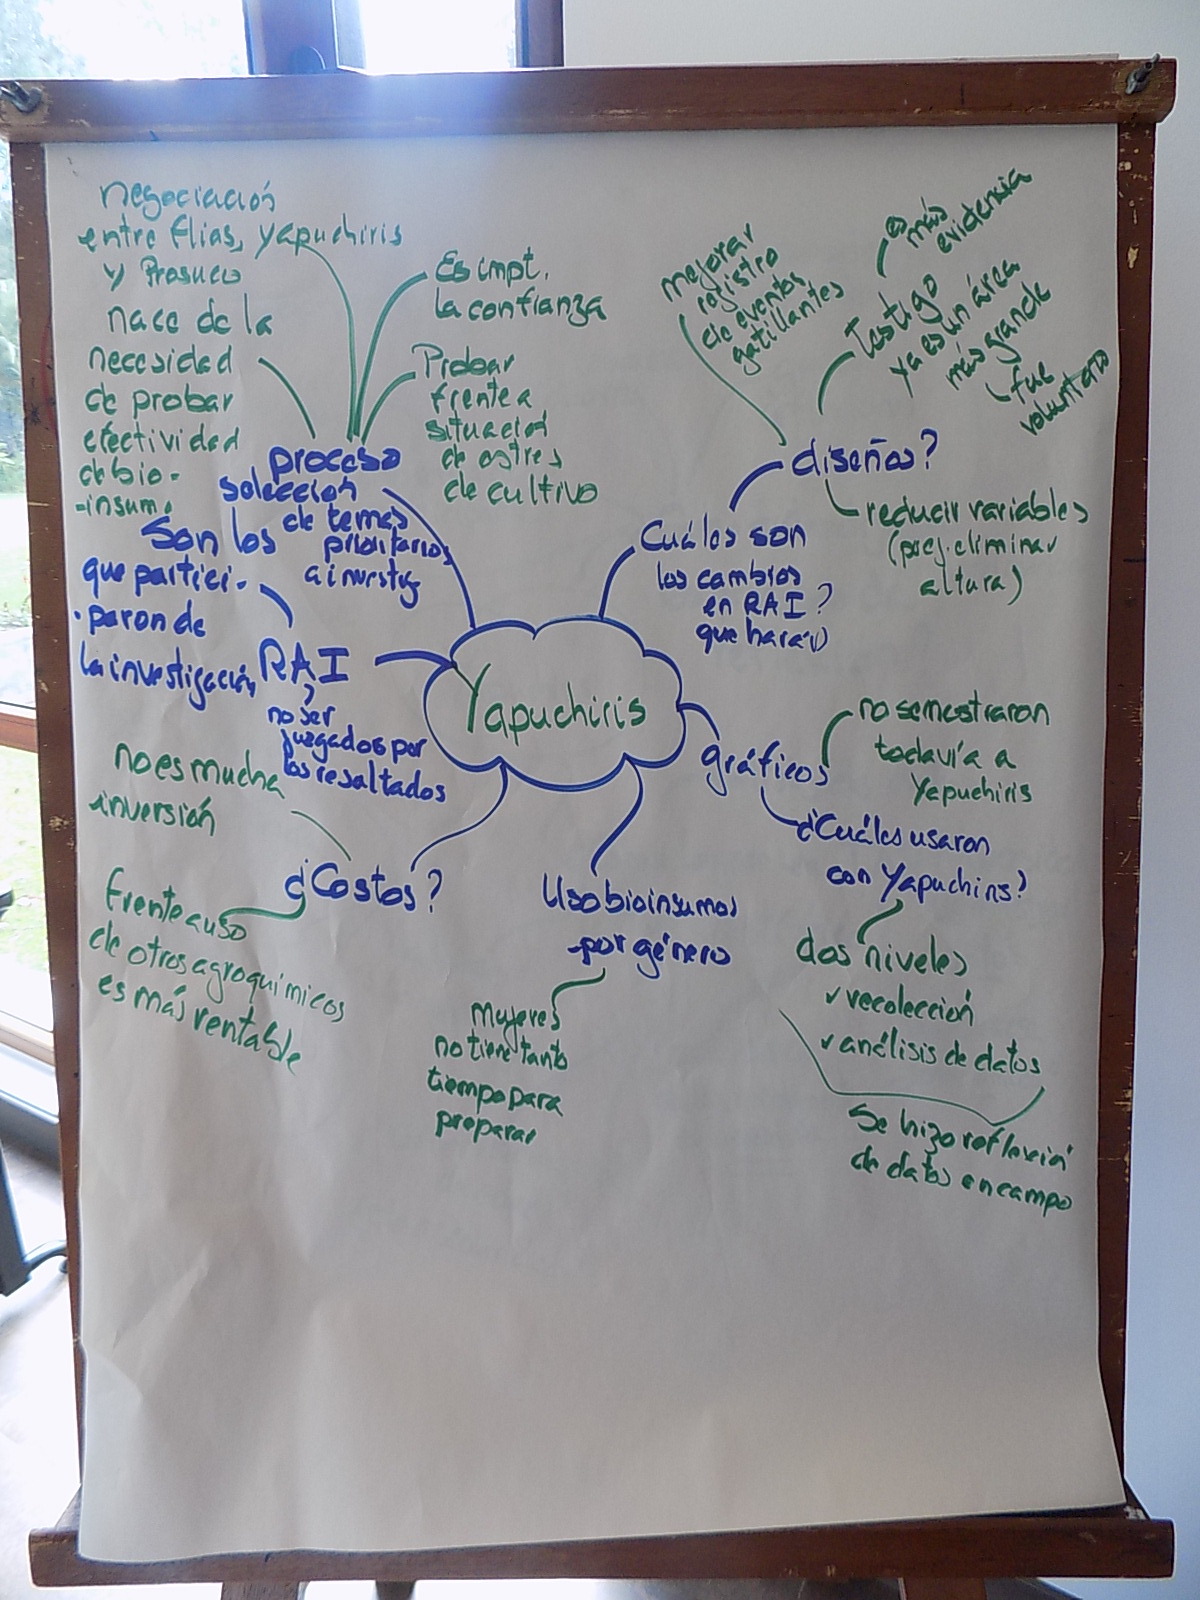 negociación
entre flias, yapuchiris
y Prosuco
nace de la
necesidad
de probar
efectividad
de bio-
-insumo
Es impt.
la confianza
Probar
frente a
situación
de estrés
de cultivo
proceso
selección
de temas
prioritarios
a investig
Son los
que partici-
paron de
la investigación
RAI
?
no ser
juzgados por
los resaltados
no es mucha
inversión
¿Costos?
Frente a uso
de otros agroquímicos
es más rentable
Yapuchiris
Uso bioinsumos
por género
Mujeres
no tiene tanto
tiempo para
preparar
mejorar
registro
de eventos
gatillantes
es más
evidencia
Testigo
ya es un área
más grande
fue
voluntario
diseños?
reducir variables
(p.ej. eliminar
altura)
Cuáles son
los cambios
en RAI?
que harán
gráficos
no se mostraron
todavía a
Yapuchiris
¿Cuáles usaron
con Yapuchiris?
dos niveles
✓ recolección
✓ análisis de datos
Se hizo reflexión
de datos en campo